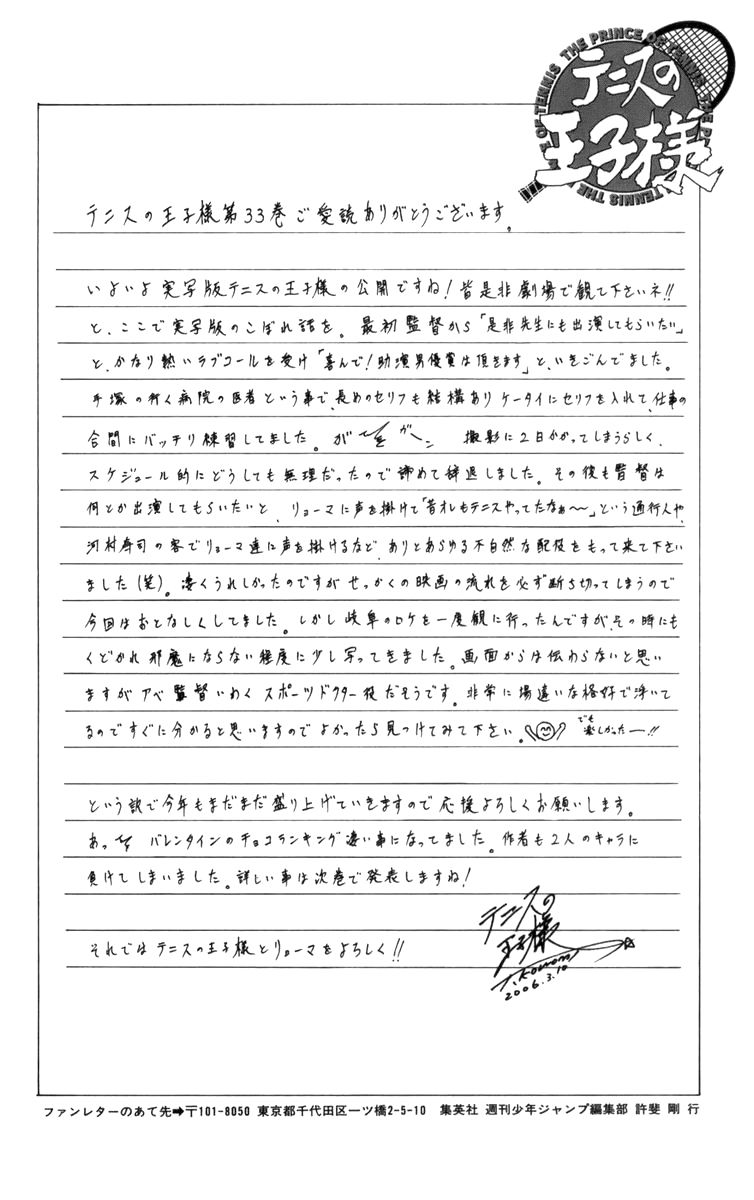 THE PRINCE OF TENNIS THE PRINCE OF TENNIS
テニスの
王子様
テニスの王子様第33巻ご愛読ありがとうございます。
いよいよ実写版テニスの王子様の公開ですね!皆是非劇場で観て下さいネ!!
と、ここで実写版のこぼれ話を。最初監督から「是非先生にも出演してもらいたい」
と、かなり熱いラブコールを受け「喜んで!助演男優賞は頂きます」と、いきごんでました。
手塚の行く病院の医者という事で、長めのセリフも結構ありケータイにセリフを入れて、仕事の
合間にバッチリ練習してました。が ガーン 撮影に2日かかってしまうらしく、
スケジュール的にどうしても無理だったので諦めて辞退しました。その後も監督は
何とか出演してもらいたいと、リョーマに声を掛けて「昔オレもテニスやってたなぁ〜」という通行人や、
河村寿司の客でリョーマ達に声を掛けるなど、ありとあらゆる不自然な配役をもって来て下さい
ました(笑)。凄くうれしかったのですがせっかくの映画の流れを必ず断ち切ってしまうので
今回はおとなしくしてました。しかし岐阜のロケを一度観に行ったんですが、その時にも
くどかれ邪魔にならない程度に少し写ってきました。画面からは伝わらないと思い
ますがアベ監督いわくスポーツドクター役だそうです。非常に場違いな格好で浮いて
るのですぐに分かると思いますのでよかったら見つけてみて下さい。でも楽しかったー!!
という訳で今年もまだまだ盛り上げていきますので応援よろしくお願いします。
あっ バレンタインのチョコランキング凄い事になってました。作者も2人のキャラに
負けてしまいました。詳しい事は次巻で発表しますね!
それではテニスの王子様とリョーマをよろしく!!
テニスの
王子様
T.Konomi
2006.3.10
ファンレターのあて先➡〒101-8050 東京都千代田区一ツ橋2-5-10 集英社 週刊少年ジャンプ編集部 許斐 剛 行